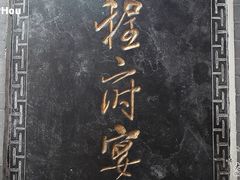 Hou
程府宴